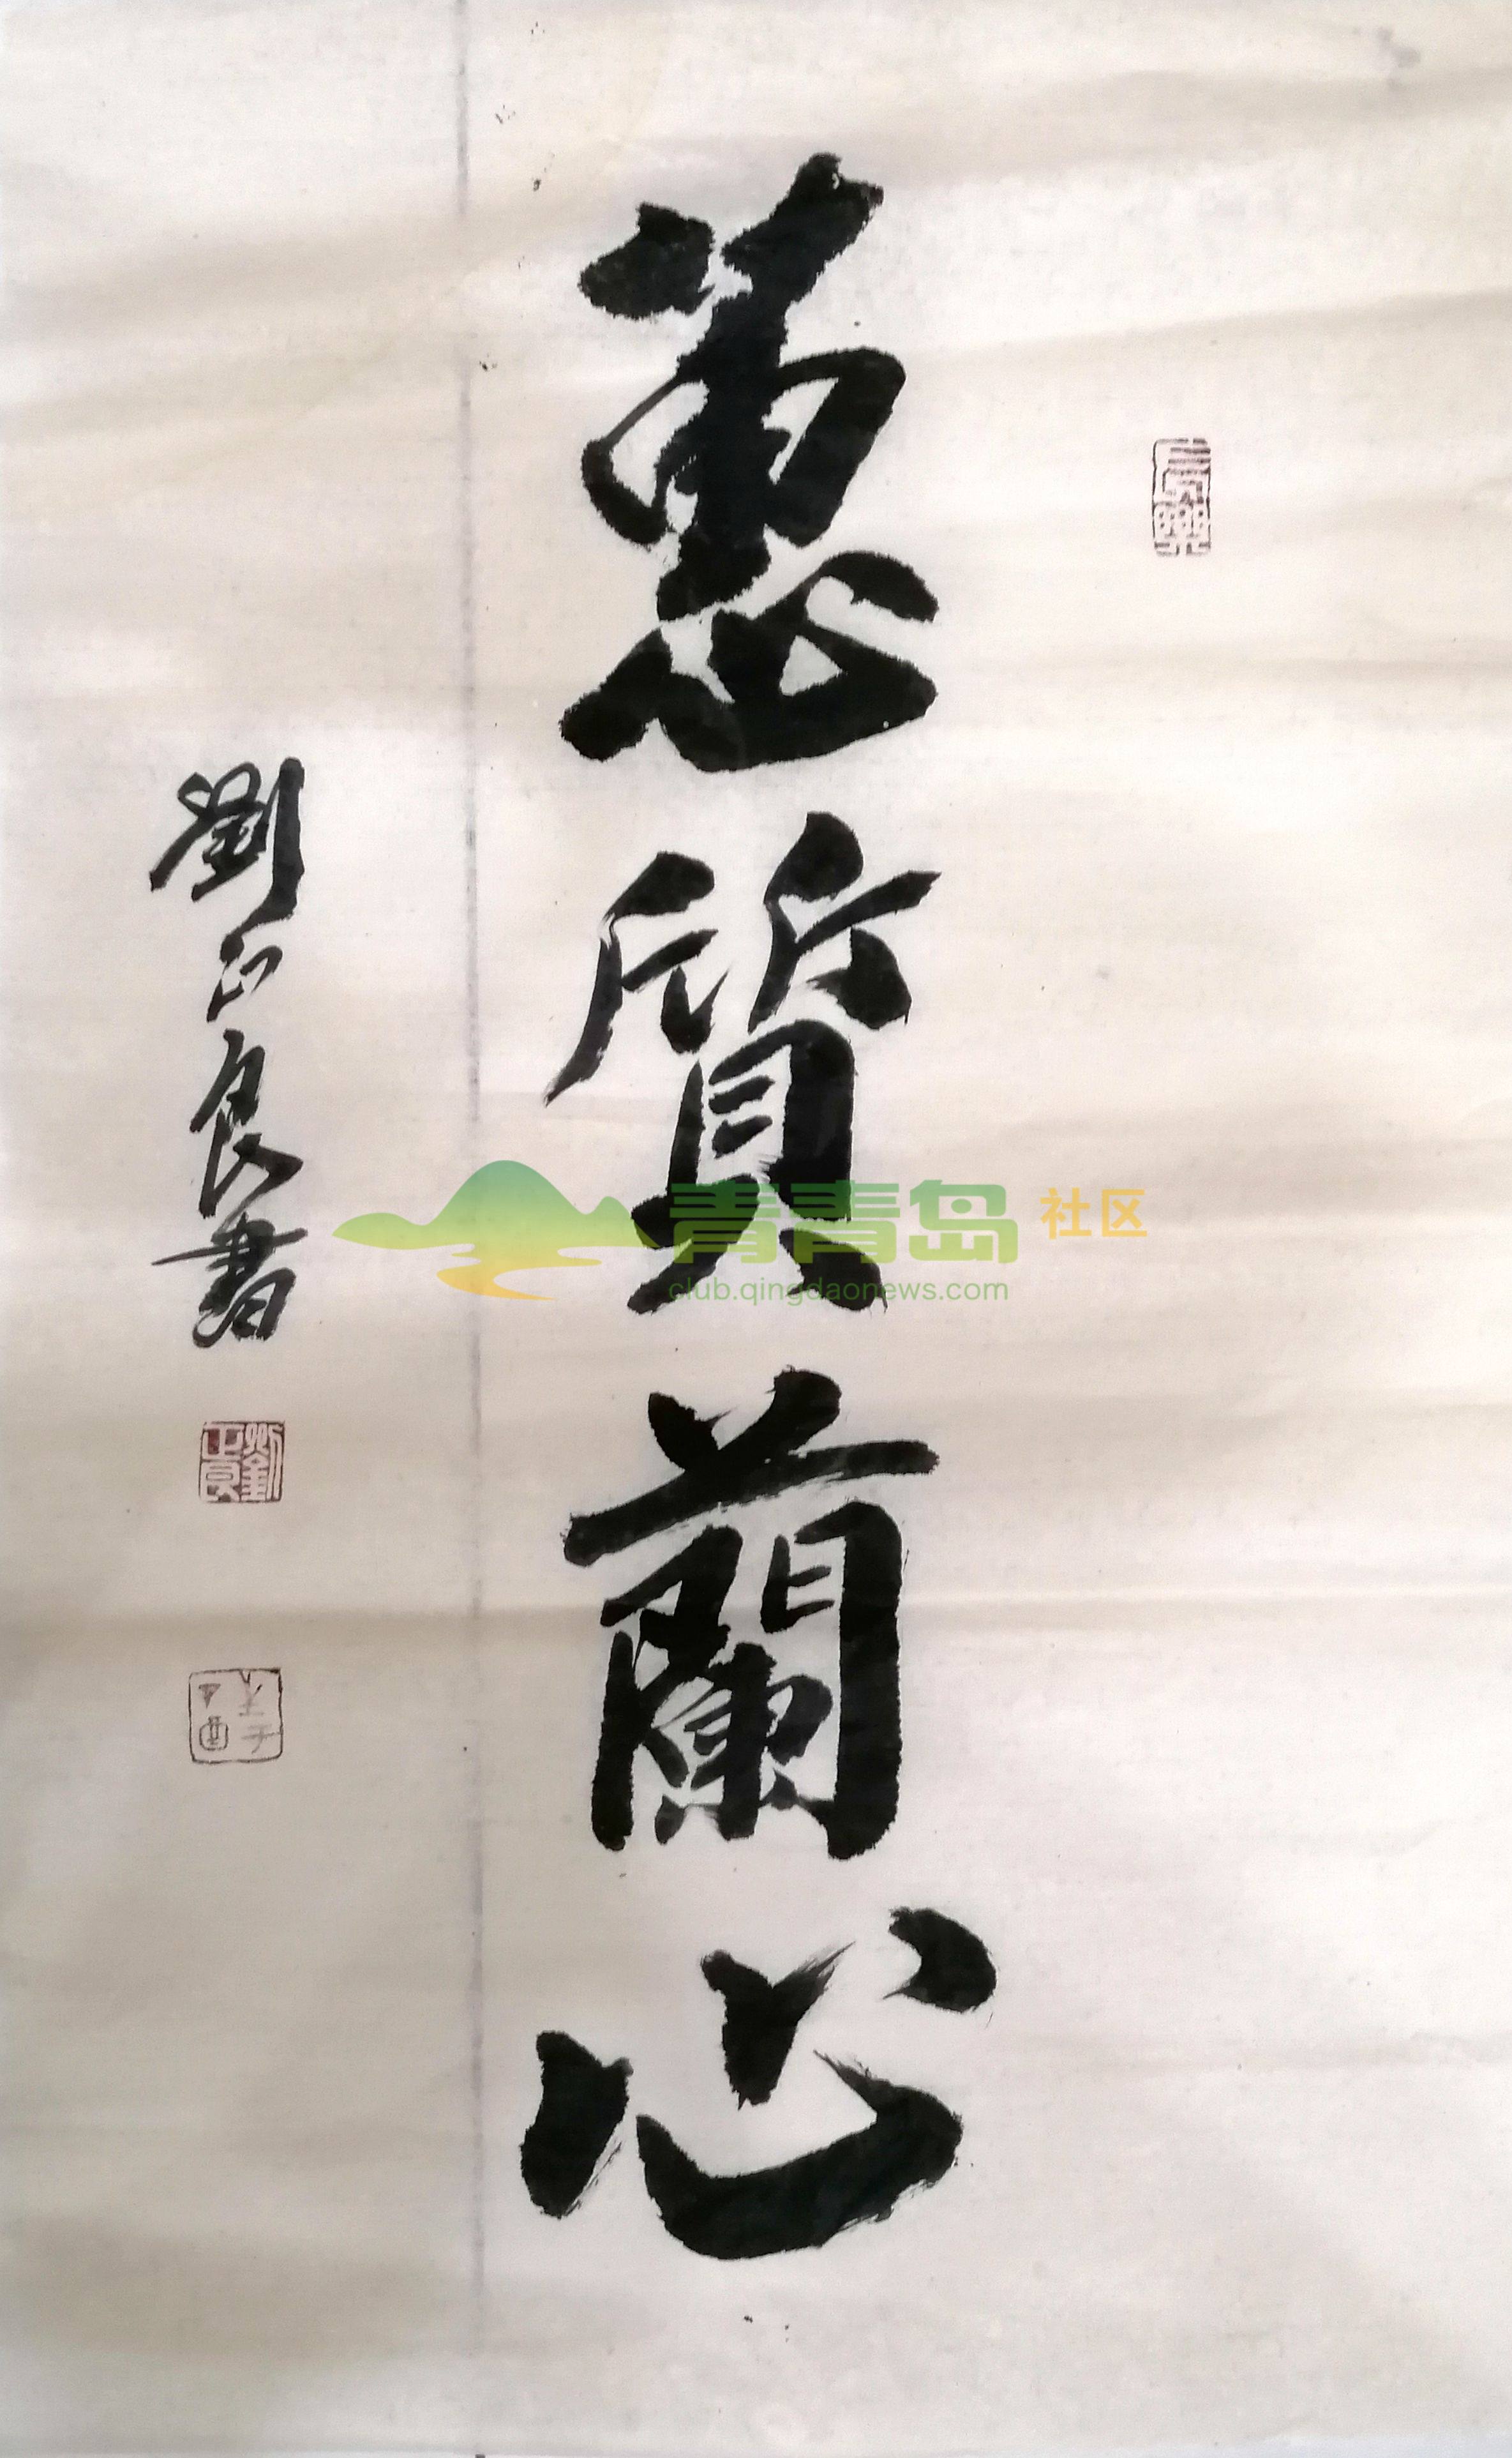 蕙質蘭心
劉正良書
劉正良
青青岛 社区
club.qingdaonews.com